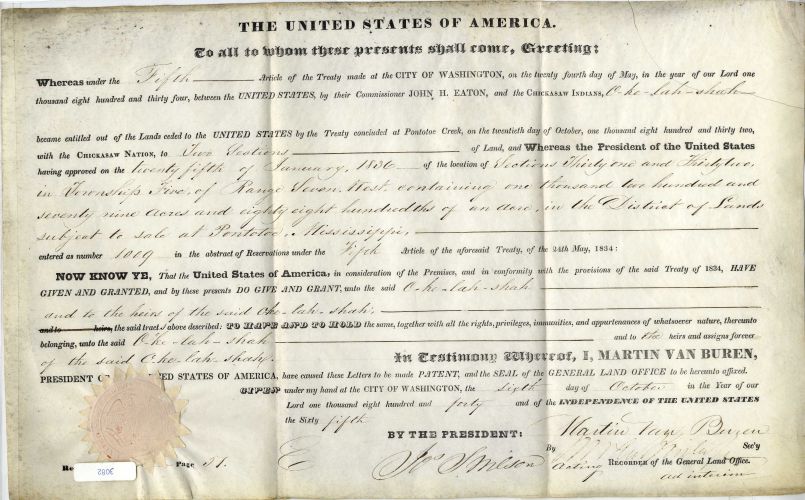 THE UNITED STATES OF AMERICA.
To all to whom these presents shall come, Greeting:
Whereas under the Fifth Article of the Treaty made at the CITY OF WASHINGTON, on the twenty fourth day of May, in the year of our Lord one
thousand eight hundred and thirty four, between the UNITED STATES, by their Commissioner JOHN H. EATON, and the CHICKASAW INDIANS, O-ke-lah-shah
became entitled out of the Lands ceded to the UNITED STATES by the Treaty concluded at Pontotoc Creek, on the twentieth day of October, one thousand eight hundred and thirty two,
with the CHICKASAW NATION, to Two Sections of Land, and Whereas the President of the United States
having approved on the twenty fifth of January, 1836 of the location of Sections Thirty one and Thirty two,
in Township Five, of Range Seven, West, containing one thousand two hundred and
seventy nine acres and eighty eight hundredths of an acre, in the District of Lands
subject to sale at Pontotoc, Mississippi,
entered as number 1009 in the abstract of Reservations under the Fifth Article of the aforesaid Treaty, of the 24th May, 1834:
NOW KNOW YE, That the United States of America, in consideration of the Premises, and in conformity with the provisions of the said Treaty of 1834, HAVE
GIVEN AND GRANTED, and by these presents DO GIVE AND GRANT, unto the said O-ke-lah-shah
and to the heirs of the said O-ke-lah-shah,
and to heirs, the said tracts above described: TO HAVE AND TO HOLD the same, together with all the rights, privileges, immunities, and appurtenances of whatsoever nature, thereunto
belonging, unto the said O-ke-lah-shah and to the heirs and assigns forever
of the said O-ke-lah-shah.
In Testimony Whereof, I, MARTIN VAN BUREN,
PRESIDENT OF UNITED STATES OF AMERICA, have caused these Letters to be made PATENT, and the SEAL of the GENERAL LAND OFFICE to be hereunto affixed.
GIVEN under my hand at the CITY OF WASHINGTON, the sixth day of October in the Year of our
Lord one thousand eight hundred and forty and of the INDEPENDENCE OF THE UNITED STATES
the Sixty fifth
BY THE PRESIDENT: Martin Van Buren
By Sec'y
Jos. S. Wilson Acting RECORDER of the General Land Office.
ad interim
Page 51.
3082